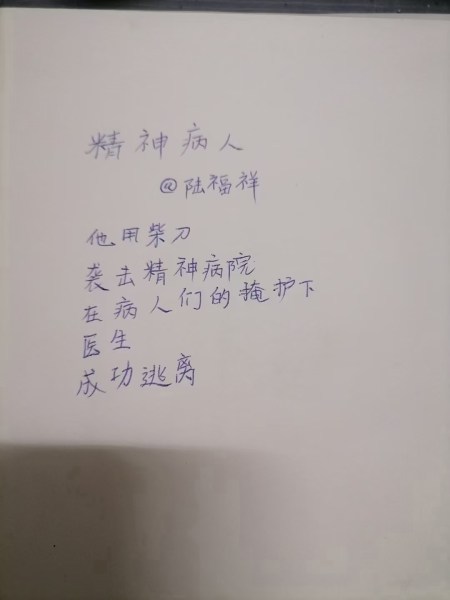 精神病人
@陆福祥
他用柴刀
袭击精神病院
在病人们的掩护下
医生
成功逃离